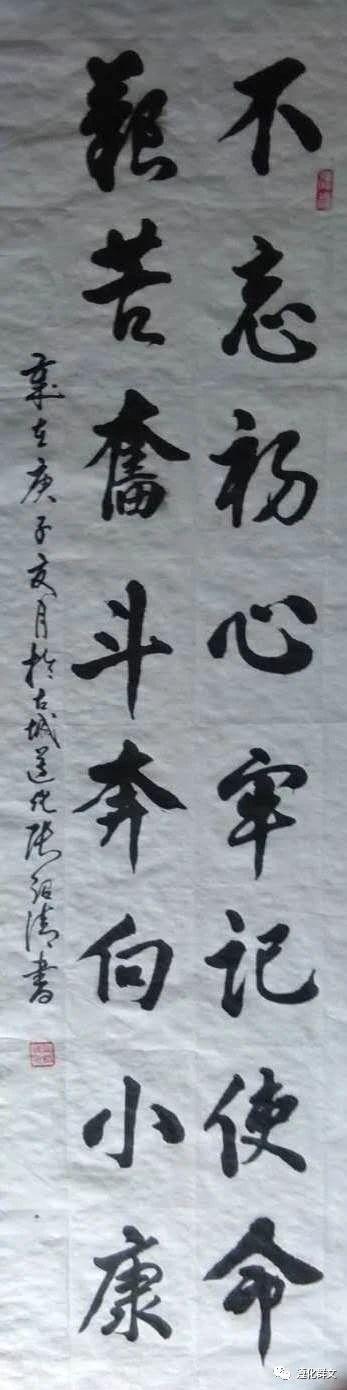 不忘初心牢记使命
艰苦奮斗奔向小康
岁在庚子夏月於古城遵化张绍清书
遵化群文